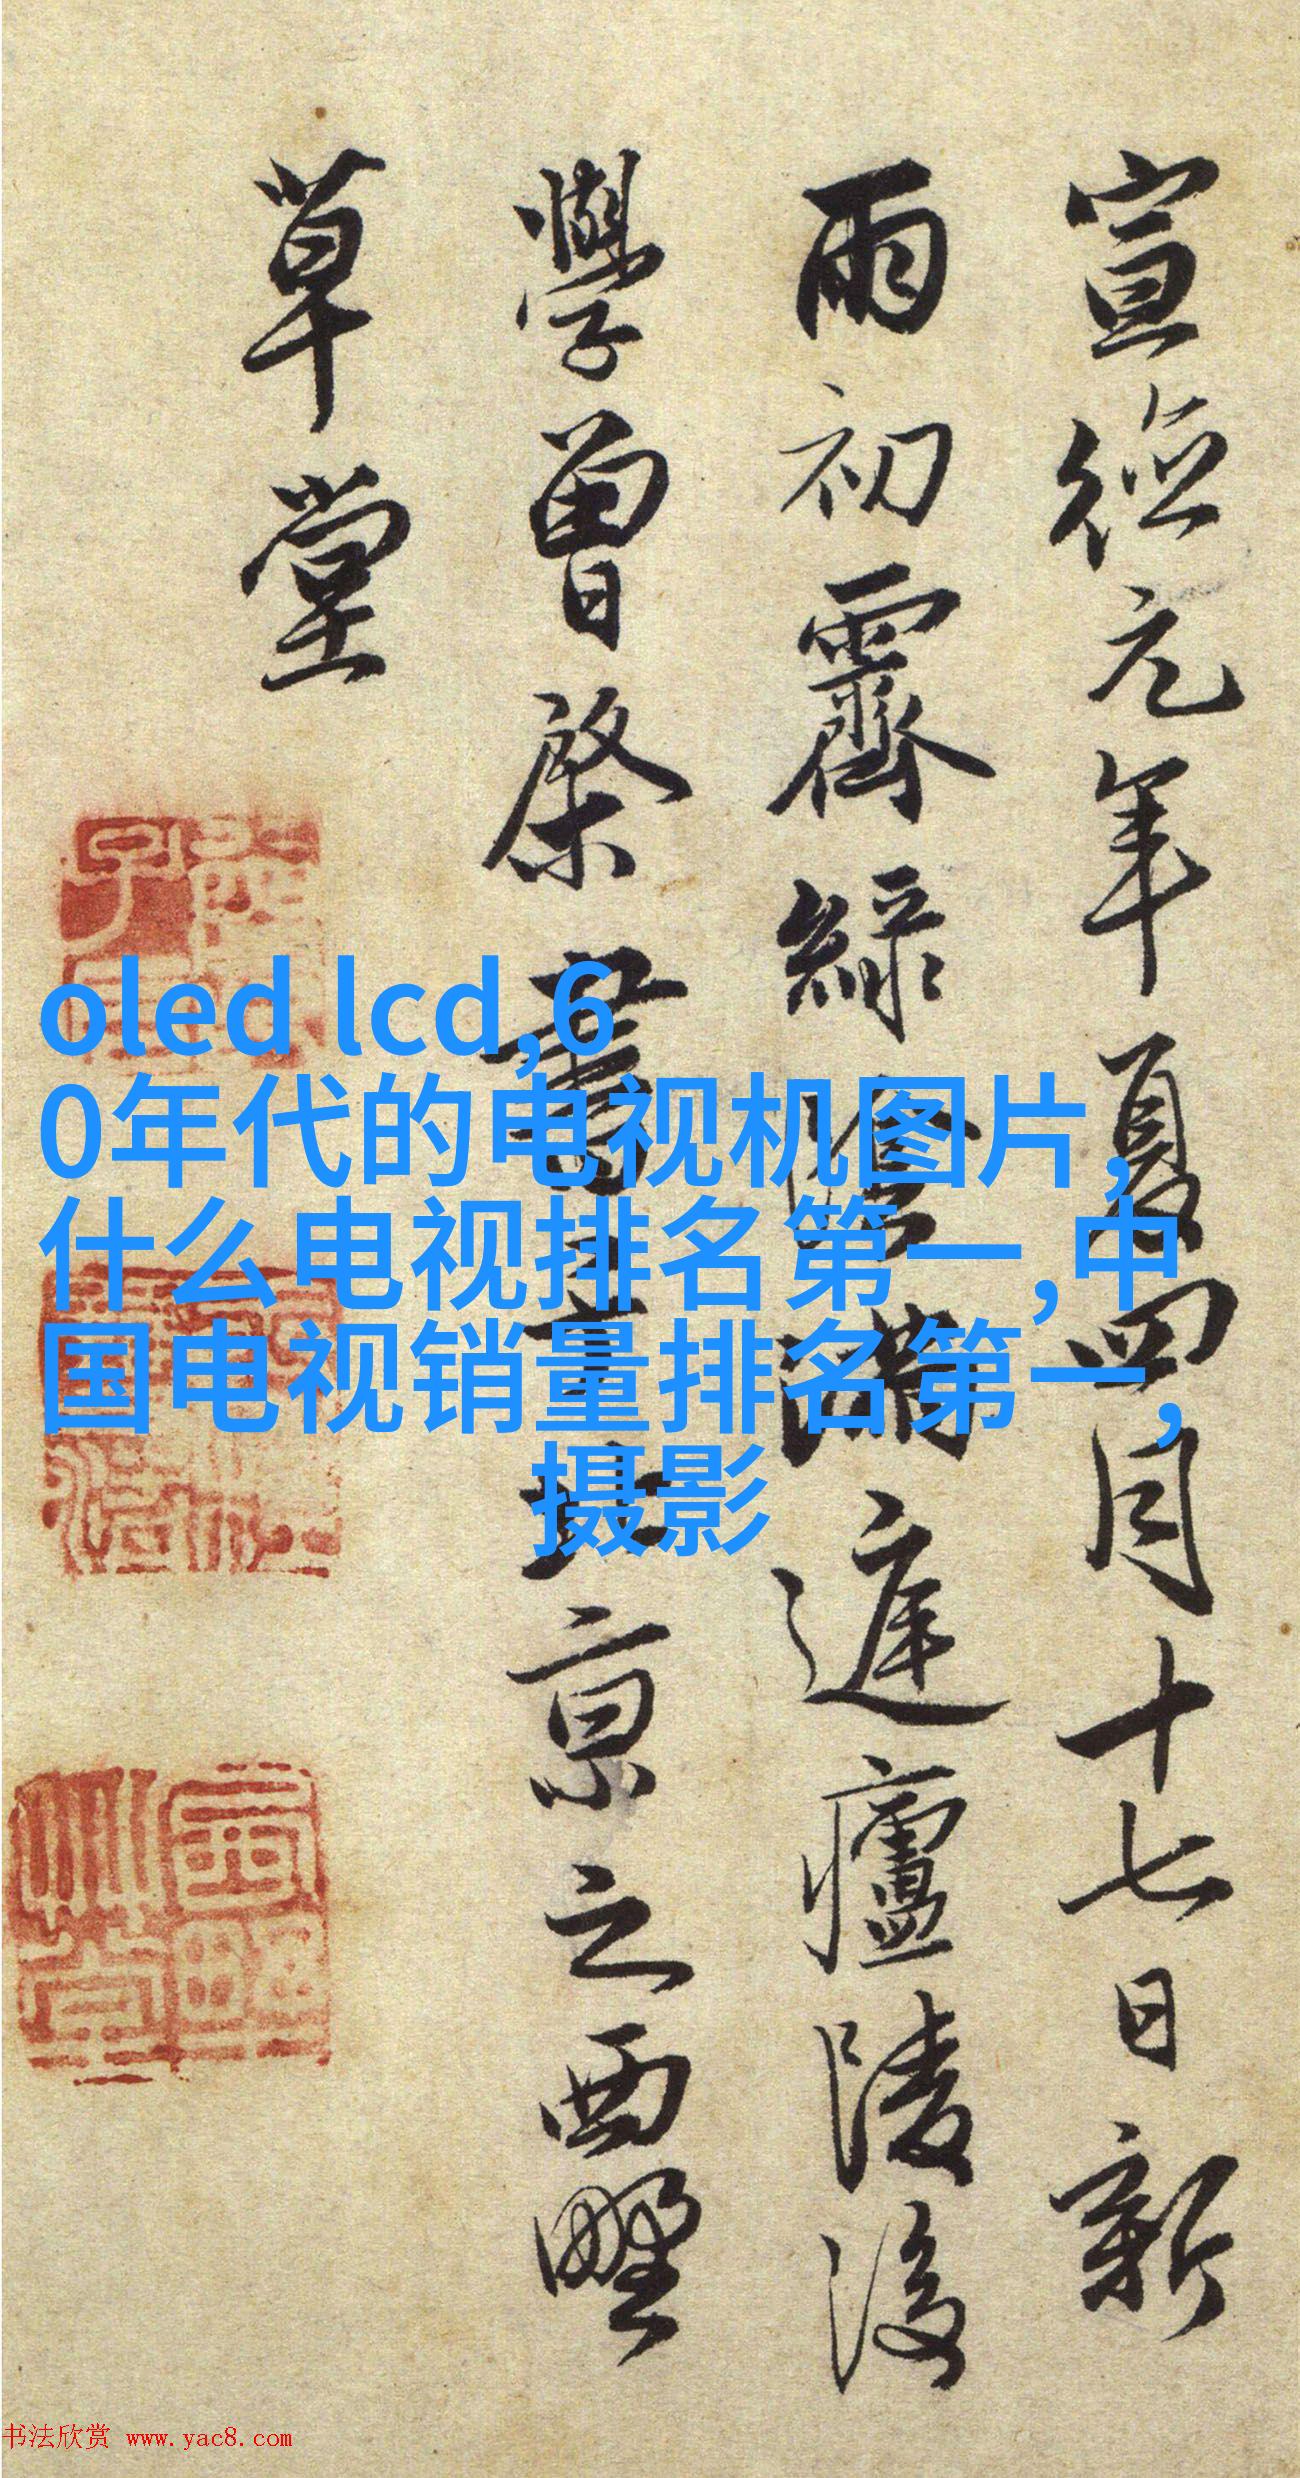 宣德元年夏四月十七日新
雨初霽綠陰滿庭廬陵後
學曾棨書于北京之西墅
草堂
oled lcd,6
0年代的电视机图片,
什么电视排名第一,中
国电视销量排名第一,
摄影
书法欣赏 www.yac8.com